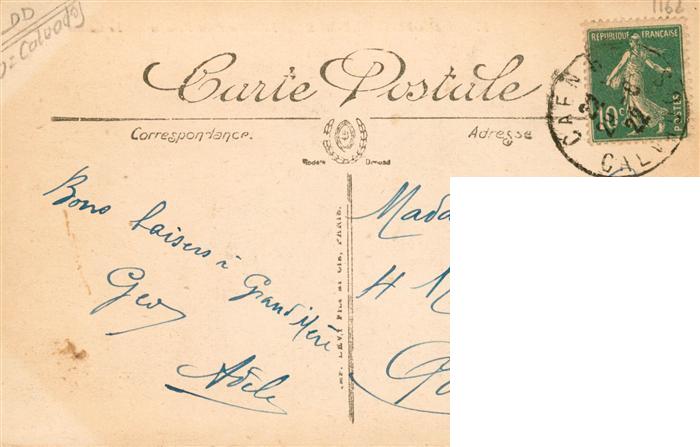 DD
Calvados
1162
Carte Postale
Correspondance.
Adresse
REPUBLIQUE FRANÇAISE
10c
POSTES
CAEN
22
CALV
Bons baisers à Grand'Mère
Geo
Adèle
Mada
4
LEVY FILS ET CIE, PARIS.